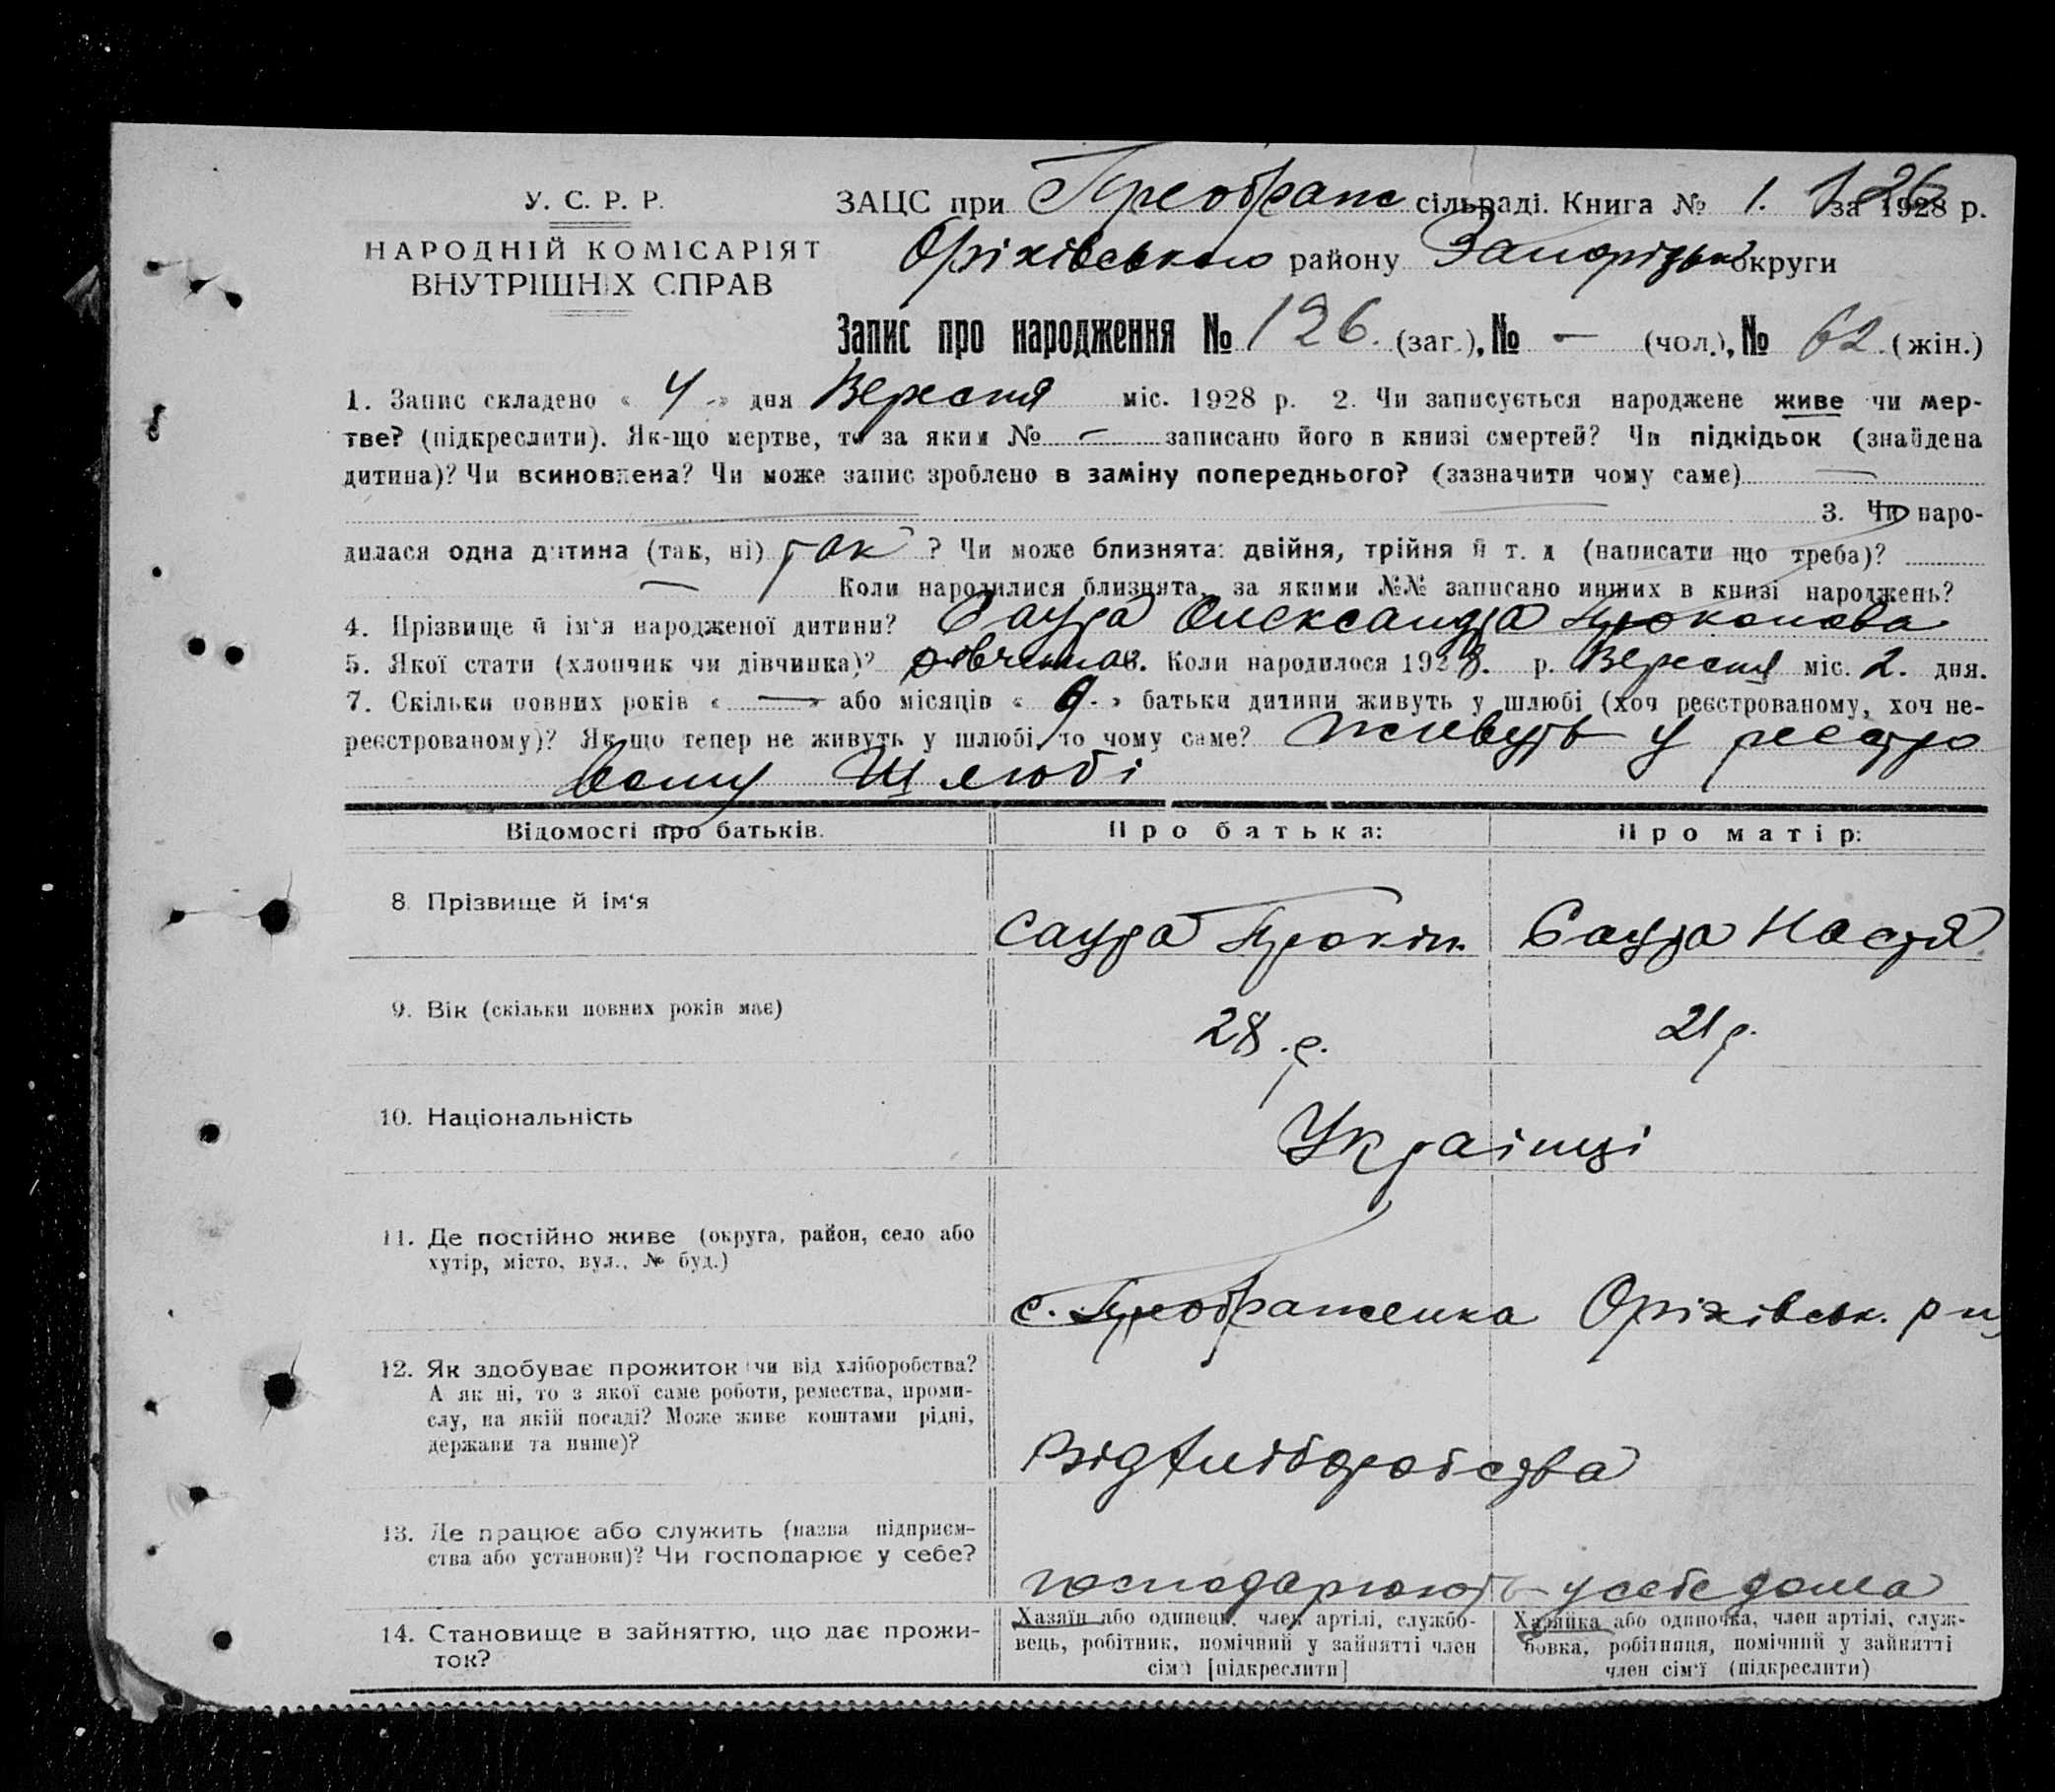 У. С. Р. Р.
НАРОДНІЙ КОМІСАРІЯТ
ВНУТРІШНІХ СПРАВ
ЗАЦС при Преображ сільраді. Книга № 1. за 1928 р.
126
Оріхівського району Запорізьк округи
Запис про народження № 126. (заг.), № — (чол.), № 62. (жін.)
1. Запис складено « 4 » дня Вересня міс. 1928 р. 2. Чи записується народжене живе чи мер-
тве? (підкреслити). Як-що мертве, то за яким № — записано його в книзі смертей? Чи підкідьок (знайдена
дитина)? Чи всиновлена? Чи може запис зроблено в заміну попереднього? (зазначити чому саме) —
3. Чи наро-
дилася одна дитина (так, ні) так ? Чи може близнята: двійня, трійня й т. д (написати що треба)?
— Коли народилися близнята, за якими №№ записано инших в книзі народжень?
4. Прізвище й ім'я народженої дитини? Саура Олександра Прокопова
5. Якої стати (хлопчик чи дівчинка)? дівчинка. Коли народилося 1928. р. Вересня міс. 2. дня.
7. Скільки повних років « — » або місяців « 9. » батьки дитини живуть у шлюбі (хоч реєстрованому, хоч не-
реєстрованому)? Як-що тепер не живуть у шлюбі, то чому саме? живуть у реєстро
вому шлюбі
Відомості про батьків. Про батька: Про матір:
8. Прізвище й ім'я Саура Прокіп. Саура Настя
9. Вік (скільки повних років має) 28.р. 21р.
10. Національність Українці
11. Де постійно живе (округа, район, село або
хутір, місто, вул., № буд.)
с. Преображенка Оріхівськ. р-ну
12. Як здобуває прожиток (чи від хліборобства?
А як ні, то з якої саме роботи, ремества, проми-
слу, на якій посаді? Може живе коштами рідні,
держави та инше)?
Від хліборобства
13. Де працює або служить (назва підприєм-
ства або установи)? Чи господарює у себе?
господарюють у себе дома
14. Становище в зайняттю, що дає прожи-
ток?
Хазяїн або одинець, член артілі, службо-
вець, робітник, помічний у зайнятті член
сім'ї [підкреслити]
Хазяйка або одиночка, член артілі, служ-
бовка, робітниця, помічний у зайнятті
член сім'ї (підкреслити)